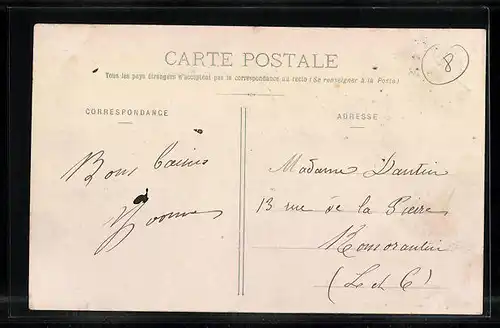 CARTE POSTALE
Tous les pays étrangers n'acceptent pas la correspondance au recto (Se renseigner à la Poste)
8
CORRESPONDANCE
ADRESSE
Bons baisers
Yvonne
Madame Dautin
13 rue de la Pierre
Romorantin
(L et C)